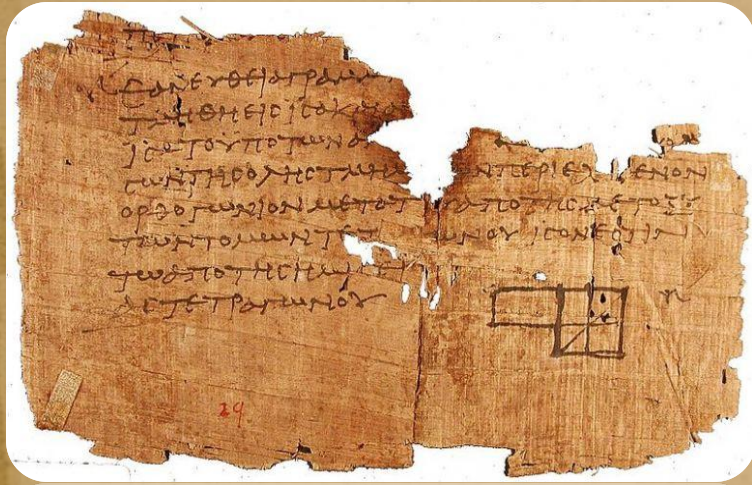 ΕΑΝΕΥΘΕΙΑΓΡΑΜΜ
ΤΜΗΘΗΕΙCΙCΑΚΑΙΑ
ΙCΑΤΟΥΠΟΤΩΝΑ
CΩΝΤΗCΟΛΗCΤΜΗΜ ΤΩΝΠΕΡΙΕΧ ΜΕΝΟΝ
ΟΡΘΟΓΩΝΙΟΝΜΕΤΟΤ ΥΑΠΟΤΗCΜΕΤΟΞΥ
ΤΩΝΤΟΜΩΝΤΕΤ ΩΝΟΥΙCΟΝΕCΤΙΝ
ΤΩΑΠΟΤΗCΗΜΙCΕΙ
ΑCΤΕΤΡΑΓΩΝΟΥ
29